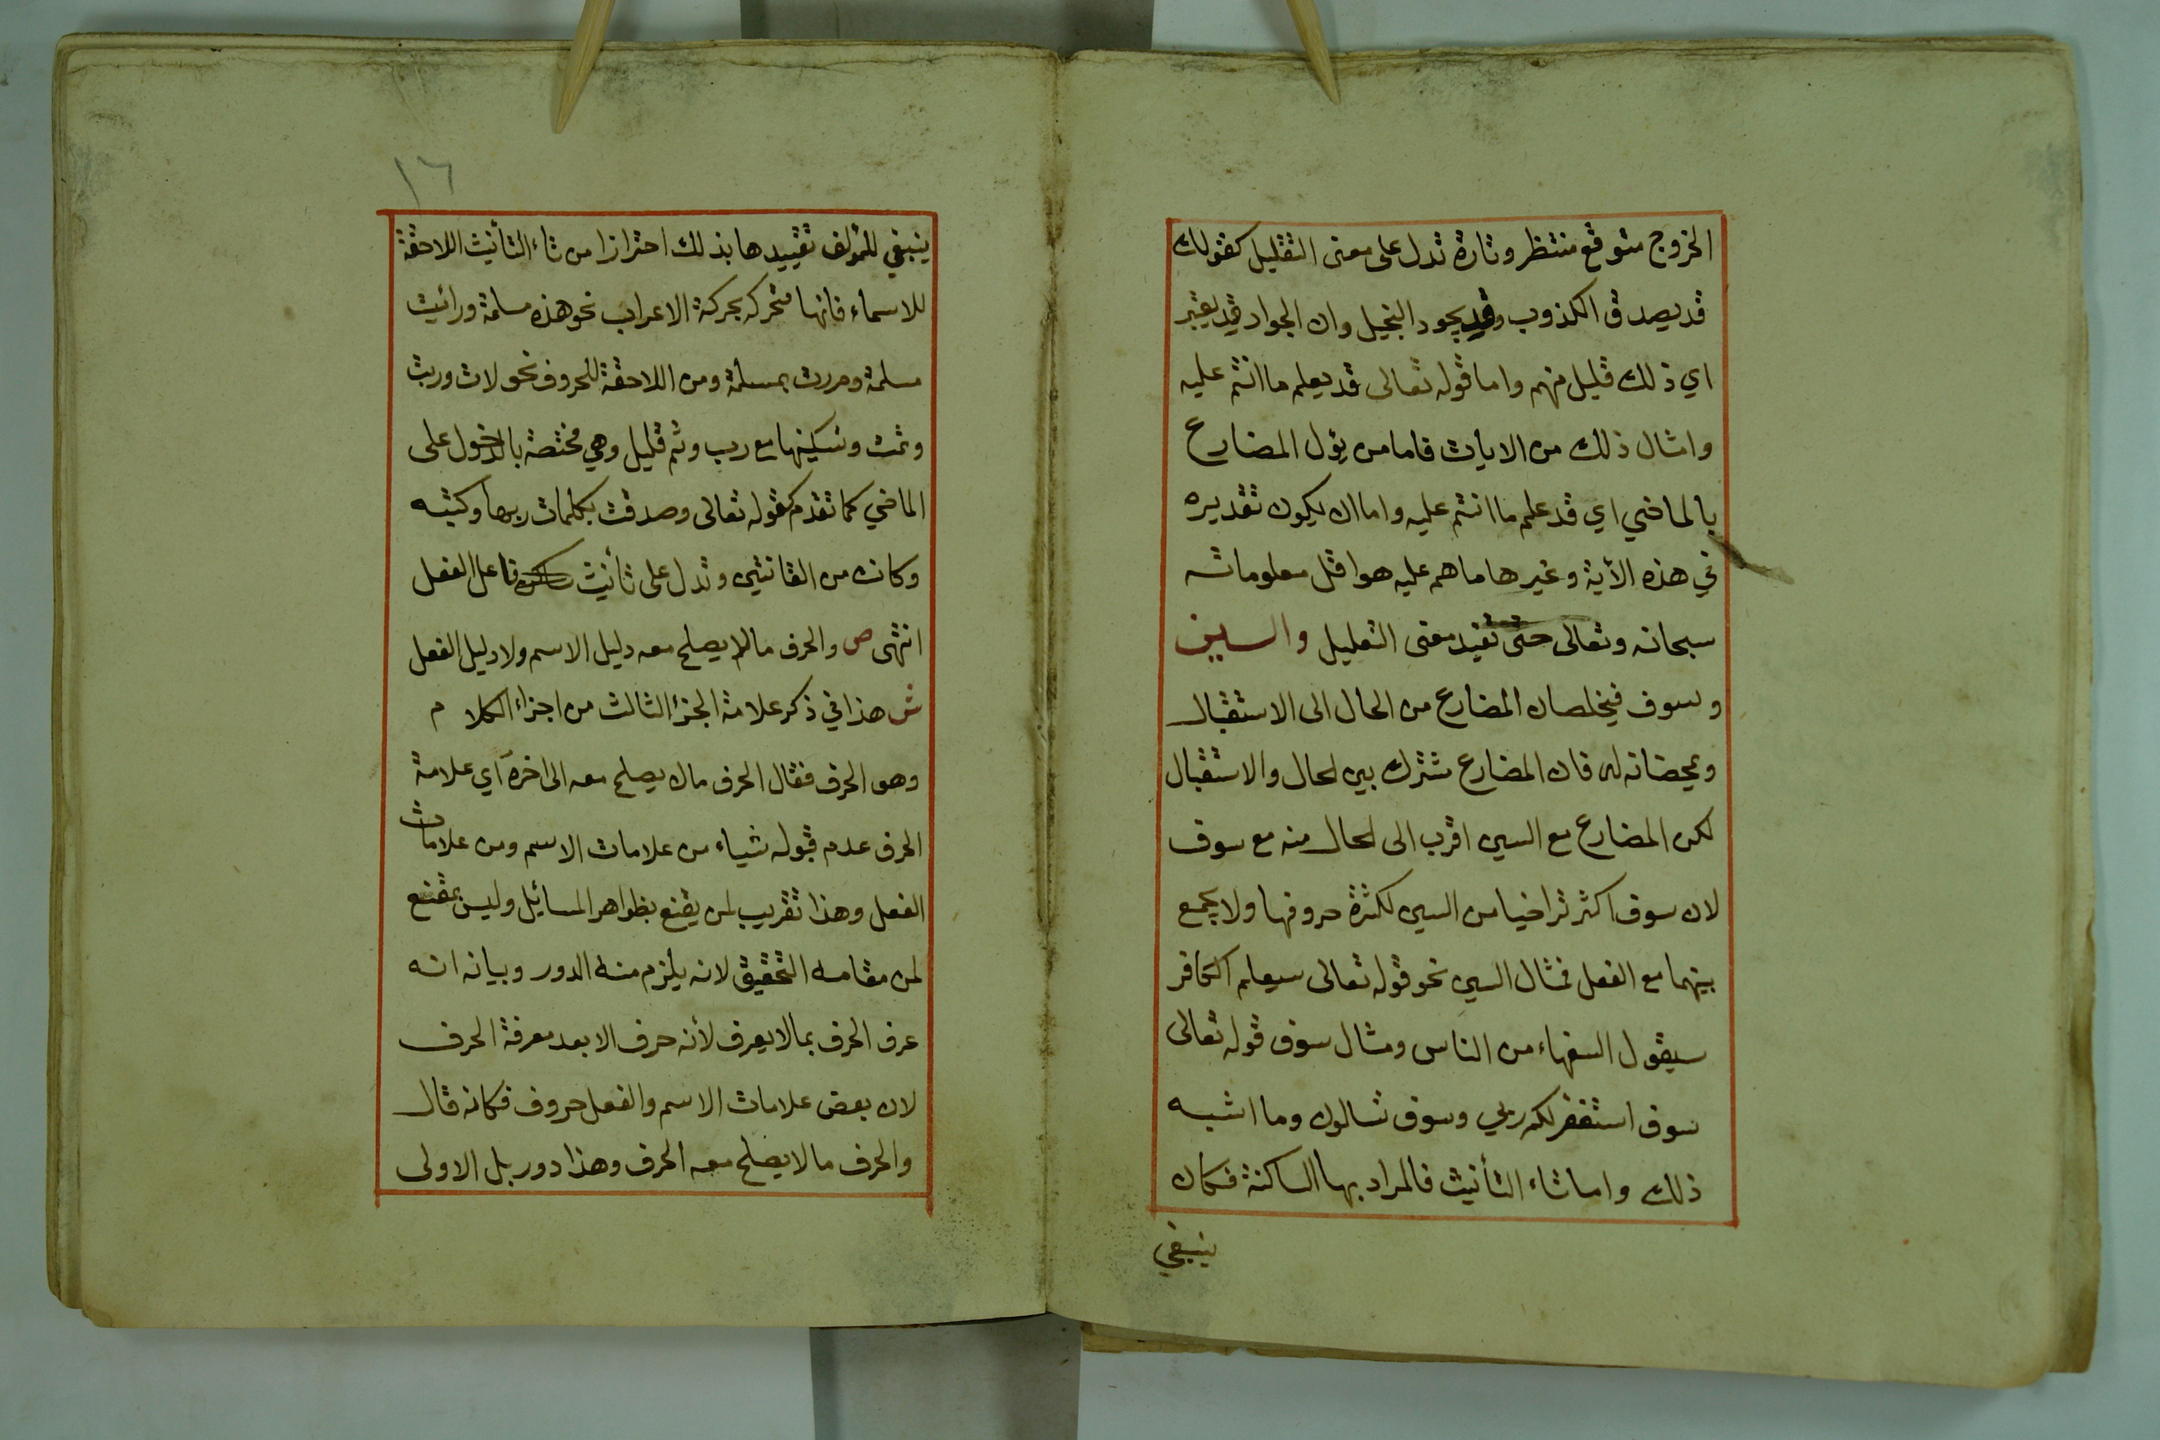 الخروج متوقع منتظر وتارة تدل على معنى التقليل كقولك
قد يصدق الكذوب وقد يجود البخيل وان الجواد قد يعثر
اي ذلك قليل منهم واما قوله تعالى قد يعلم ما انتم عليه
وامثال ذلك من الايات فاما من يؤل المضارع
بالماضي اي قد علم ما انتم عليه واما ان يكون تقديره
في هذه الأية وغيرها ما هم عليه هو اقل معلوماته
سبحانه وتعالى حتى تفيد معنى التعليل والسين
وسوف فيخلصان المضارع من الحال الى الاستقبال
ويمحضانه له فان المضارع مشترك بين الحال والاستقبال
لكن المضارع مع السين اقرب الى الحال منه مع سوف
لان سوف اكثر تراخيا من السين لكثرة حروفها ولا يجمع
بينهما مع الفعل فمثال السين نحو قوله تعالى سيعلم الكافر
سيقول السفهاء من الناس ومثال سوف قوله تعالى
سوف استغفر لكم ربي وسوف تسالون وما اشبه
ذلك واما تاء التأنيث فالمراد بها الساكنة فكان
ينبغي
١٦
ينبغي للمؤلف تقييدها بذلك احترازا من تاء التأنيث اللاحقة
للاسماء فانها متحركه بحركة الاعراب نحو هذه مسلمة ورائيت
مسلمة ومررت بمسلمة ومن اللاحقة للحروف نحو لات وربت
وثمت وتسكينها مع رب وثم قليل وهي مختصة بالدخول على
الماضي كما تقدم كقوله تعالى وصدقت بكلمات ربها وكتبه
وكانت من القانتين وتدل على تأنيث فاعل الفعل
انتهى ص والحرف ما لا يصلح معه دليل الاسم ولا دليل الفعل
ش هذا في ذكر علامة الجزء الثالث من اجزاء الكلام
وهو الحرف فقال الحرف ما لا يصلح معه الى اخره اي علامة
الحرف عدم قبوله شياء من علامات الاسم ومن علامات
الفعل وهذا تقريب لمن يقنع بظواهر المسايل وليس بمقنع
لمن مقامه التحقيق لانه يلزم منه الدور وبيانه انه
عرف الحرف بما لا يعرف لأنه حرف الا بعد معرفة الحرف
لان بعض علامات الاسم والفعل حروف فكانه قال
والحرف ما لا يصلح معه الحرف وهذا دور بل الاولى